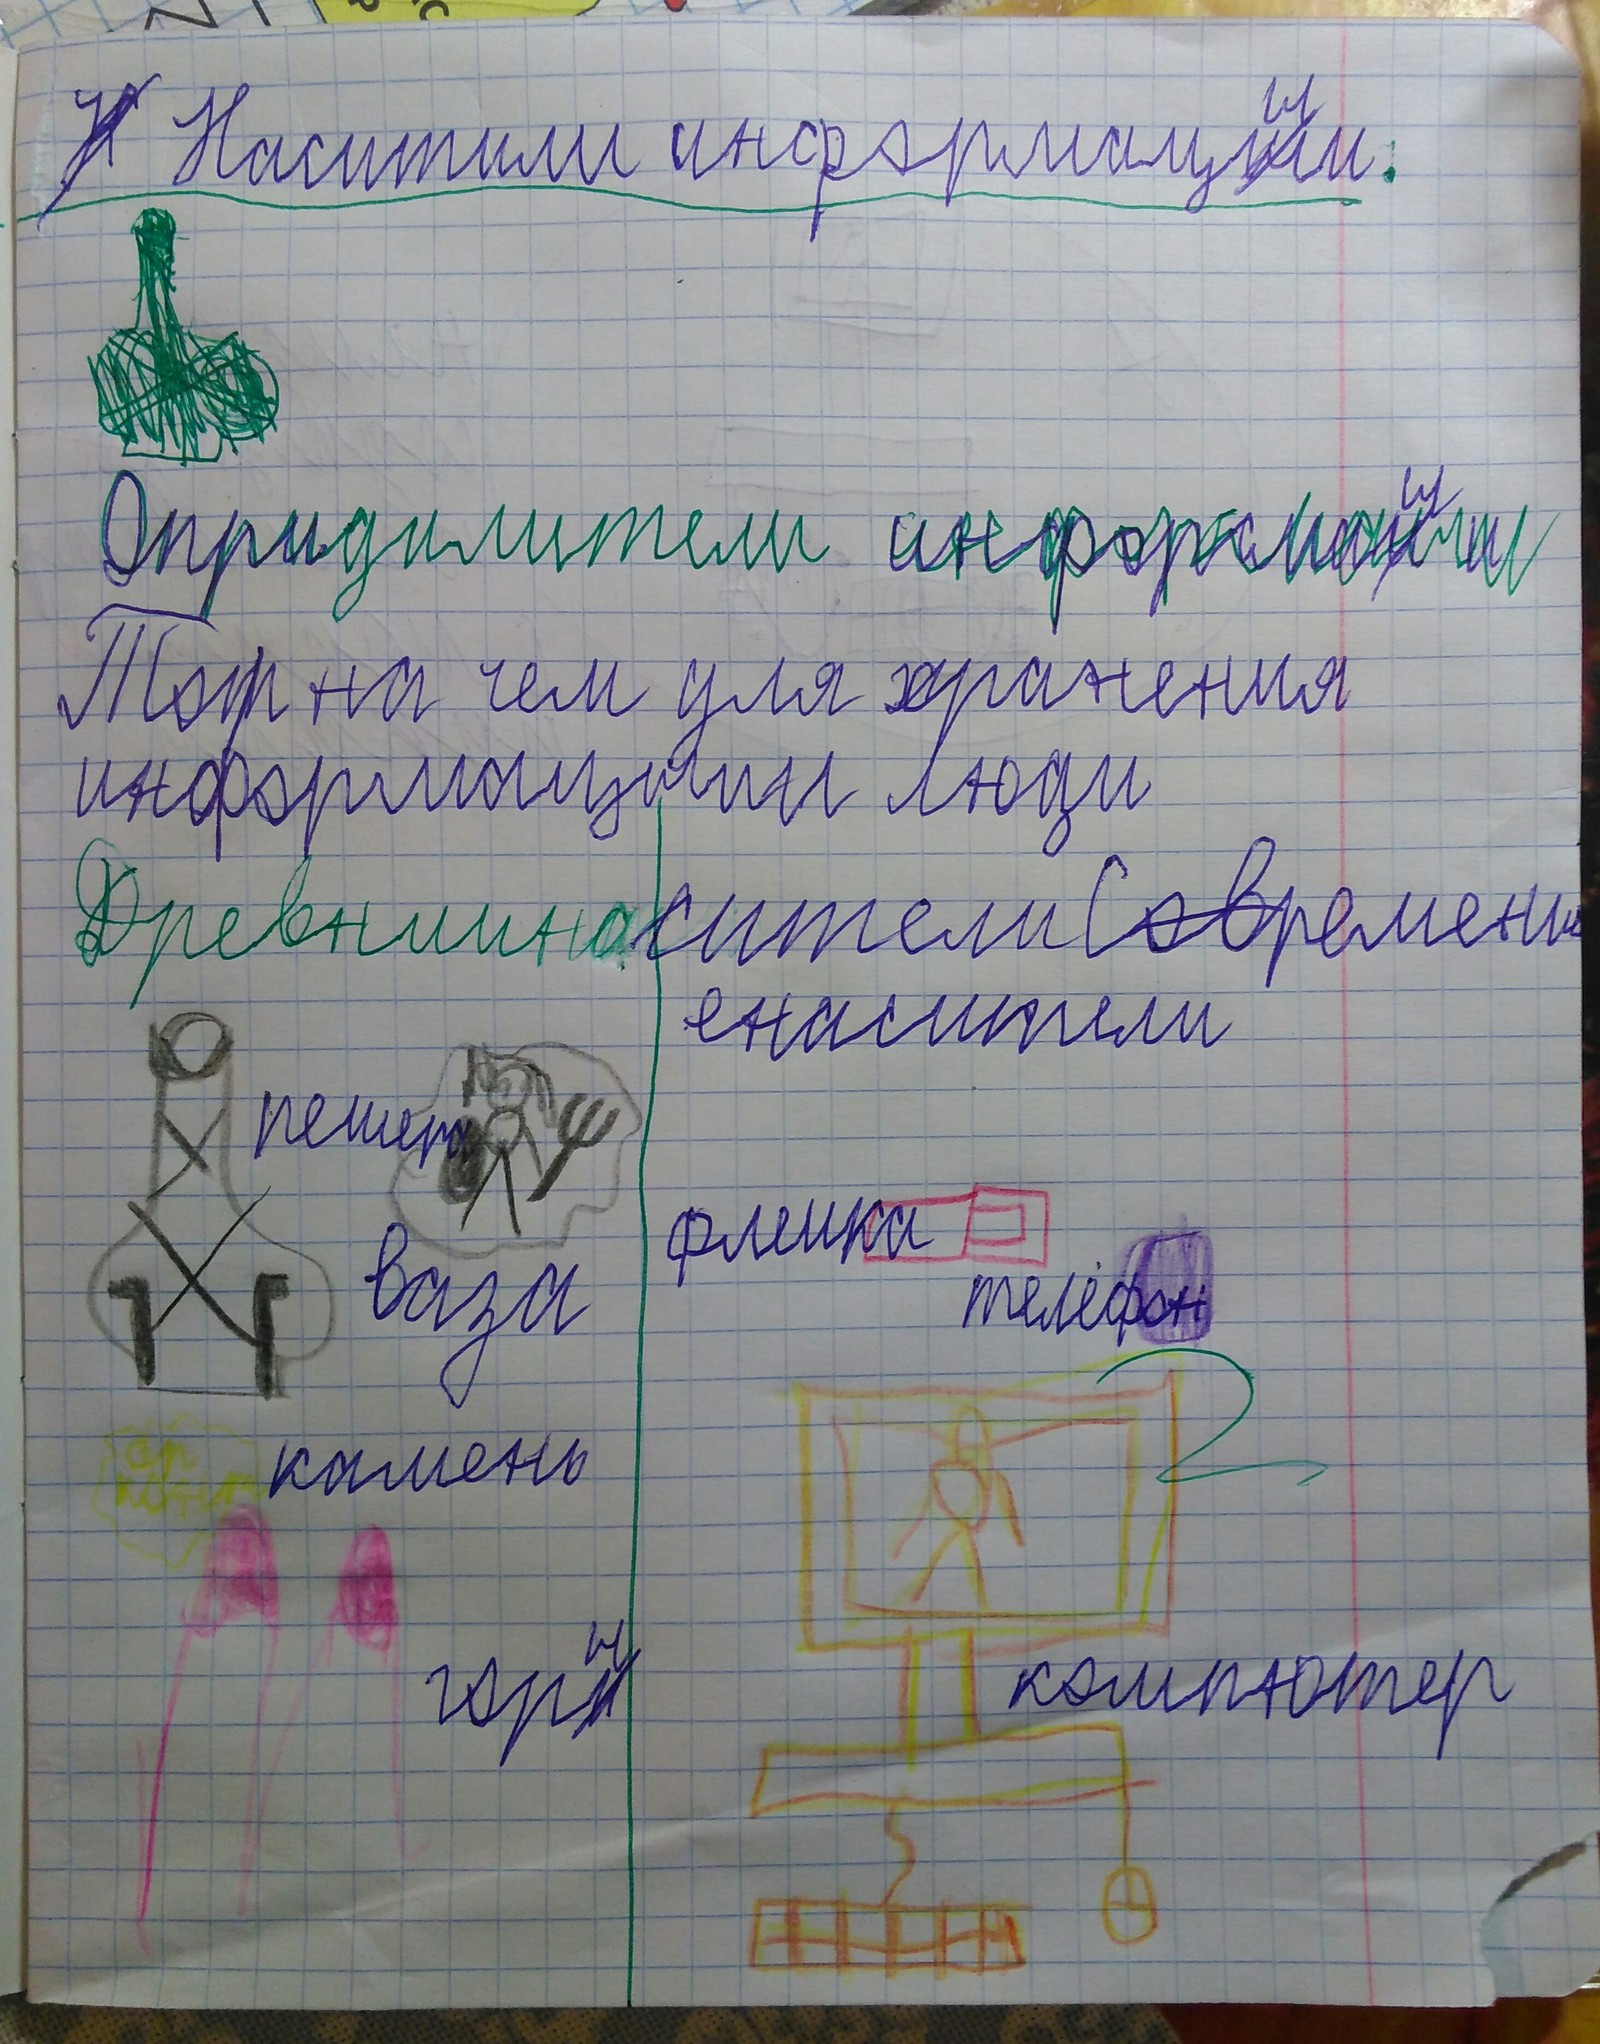 Наситили информации.
Опридилители информации
То на чем для хранения
информации люди
Древниинасители Современы
енасители
пещера
ваза
флешка
телефон
2
камень
горы
компютер